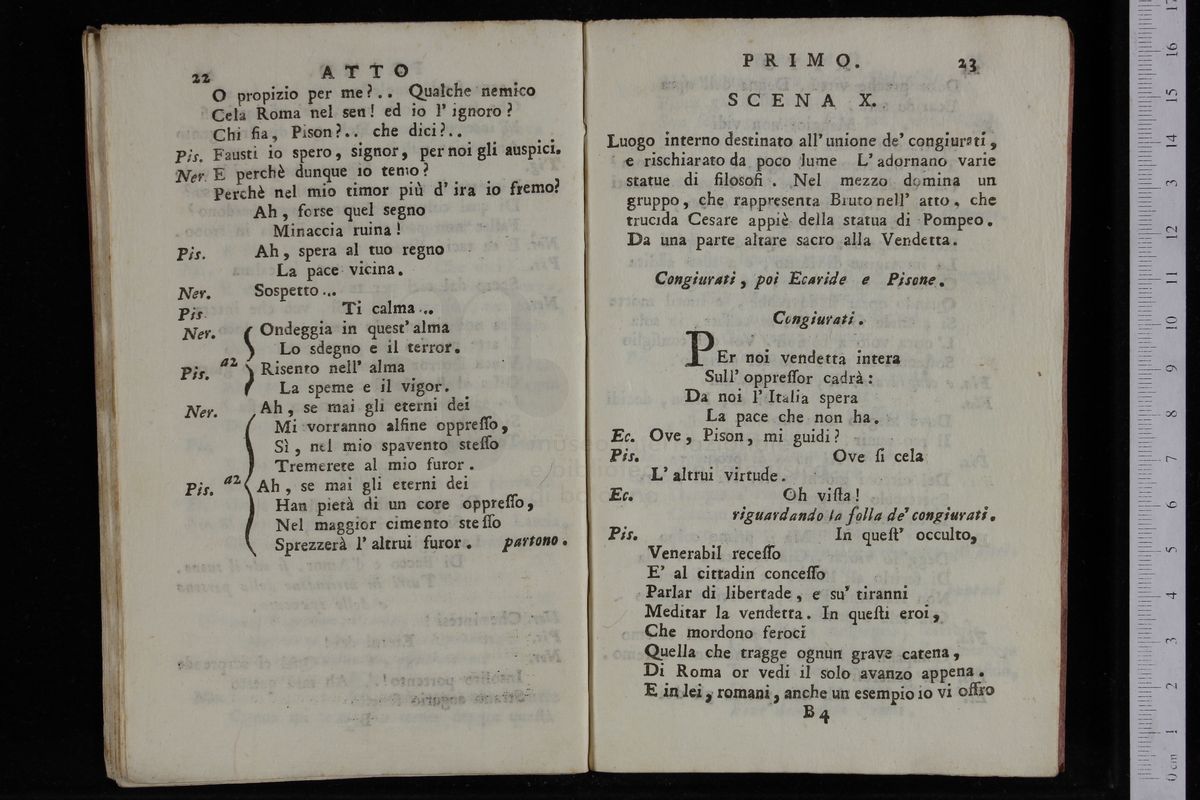 22 ATTO
O propizio per me?.. Qualche nemico
Cela Roma nel sen! ed io l' ignoro?
Chi fia, Pison?.. che dici?..
Pis. Fausti io spero, signor, per noi gli auspici.
Ner. E perchè dunque io temo?
Perchè nel mio timor più d' ira io fremo?
Ah, forse quel segno
Minaccia ruina!
Pis. Ah, spera al tuo regno
La pace vicina.
Ner. Sospetto...
Pis. Ti calma...
Ner. Ondeggia in quest' alma
Lo sdegno e il terror.
a2
Pis. Risento nell' alma
La speme e il vigor.
Ner. Ah, se mai gli eterni dei
Mi vorranno alfine oppresso,
Sì, nel mio spavento stesso
Tremerete al mio furor.
Pis. a2 Ah, se mai gli eterni dei
Han pietà di un core oppresso,
Nel maggior cimento stesso
Sprezzerà l' altrui furor. partono.
PRIMO. 23
SCENA X.
Luogo interno destinato all' unione de' congiurati,
e rischiarato da poco lume L' adornano varie
statue di filosofi. Nel mezzo domina un
gruppo, che rappresenta Bruto nell' atto, che
trucida Cesare appiè della statua di Pompeo.
Da una parte altare sacro alla Vendetta.
Congiurati, poi Ecaride e Pisone.
Congiurati.
PEr noi vendetta intera
Sull' oppressor cadrà:
Da noi l' Italia spera
La pace che non ha.
Ec. Ove, Pison, mi guidi?
Pis. Ove si cela
L' altrui virtude.
Ec. Oh vista!
riguardando la folla de' congiurati.
Pis. In quest' occulto,
Venerabil recesso
E' al cittadin concesso
Parlar di libertade, e su' tiranni
Meditar la vendetta. In questi eroi,
Che mordono feroci
Quella che tragge ognun grave catena,
Di Roma or vedi il solo avanzo appena.
E in lei, romani, anche un esempio io vi offro
B 4
0 cm 1 2 3 4 5 6 7 8 9 10 11 12 13 14 15 16 17